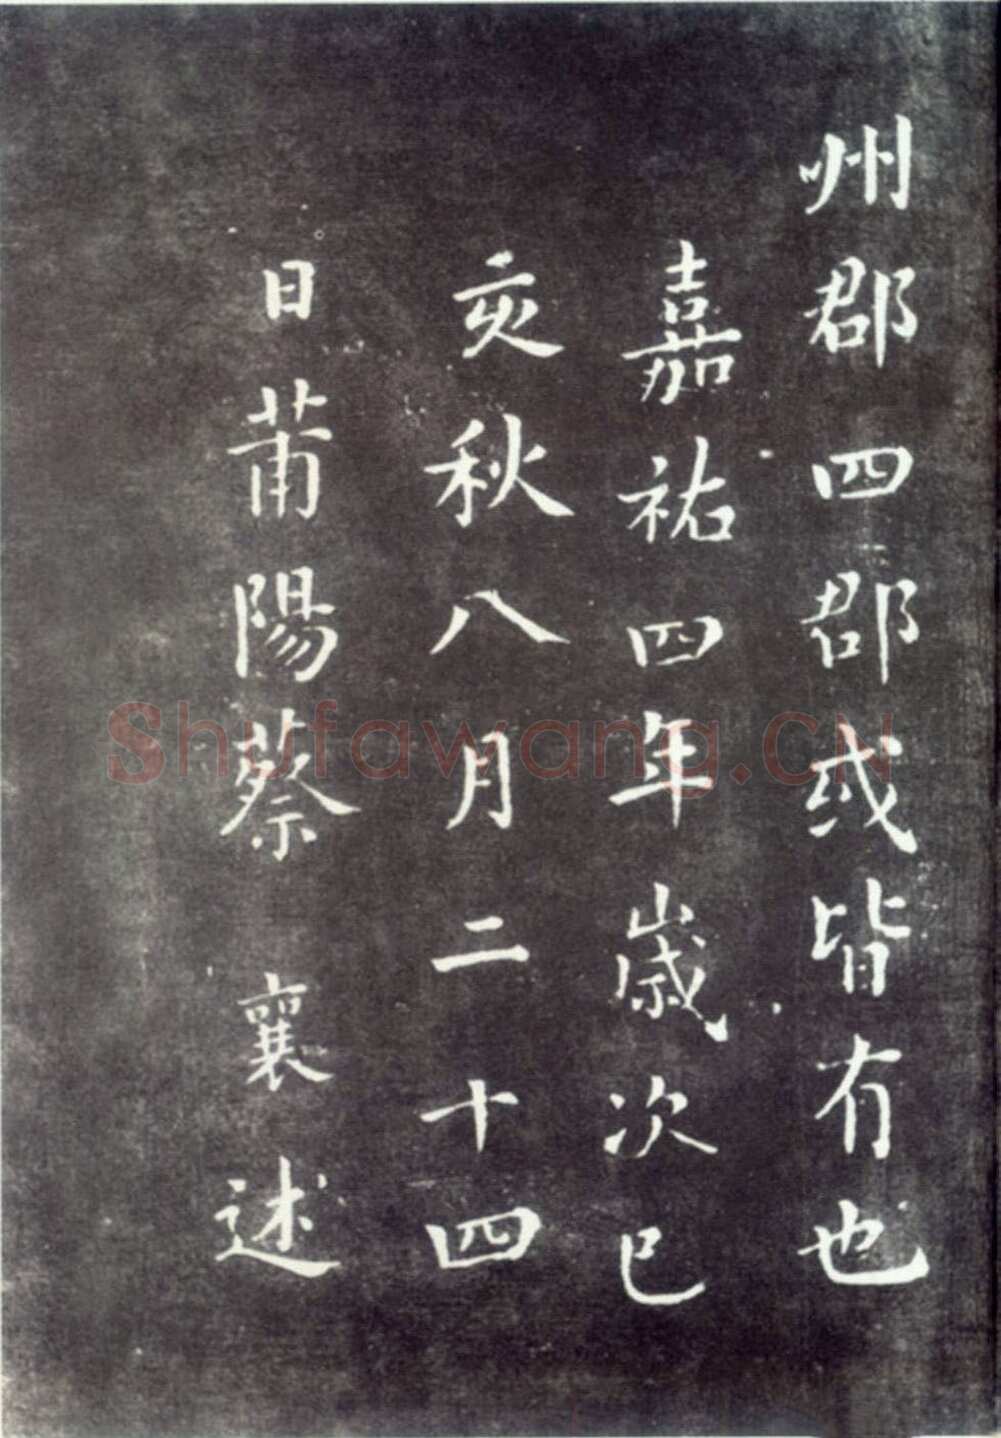 州郡四郡或皆有也
嘉祐四年歳次己
亥秋八月二十四
日莆陽蔡襄述
Shufawang.CN